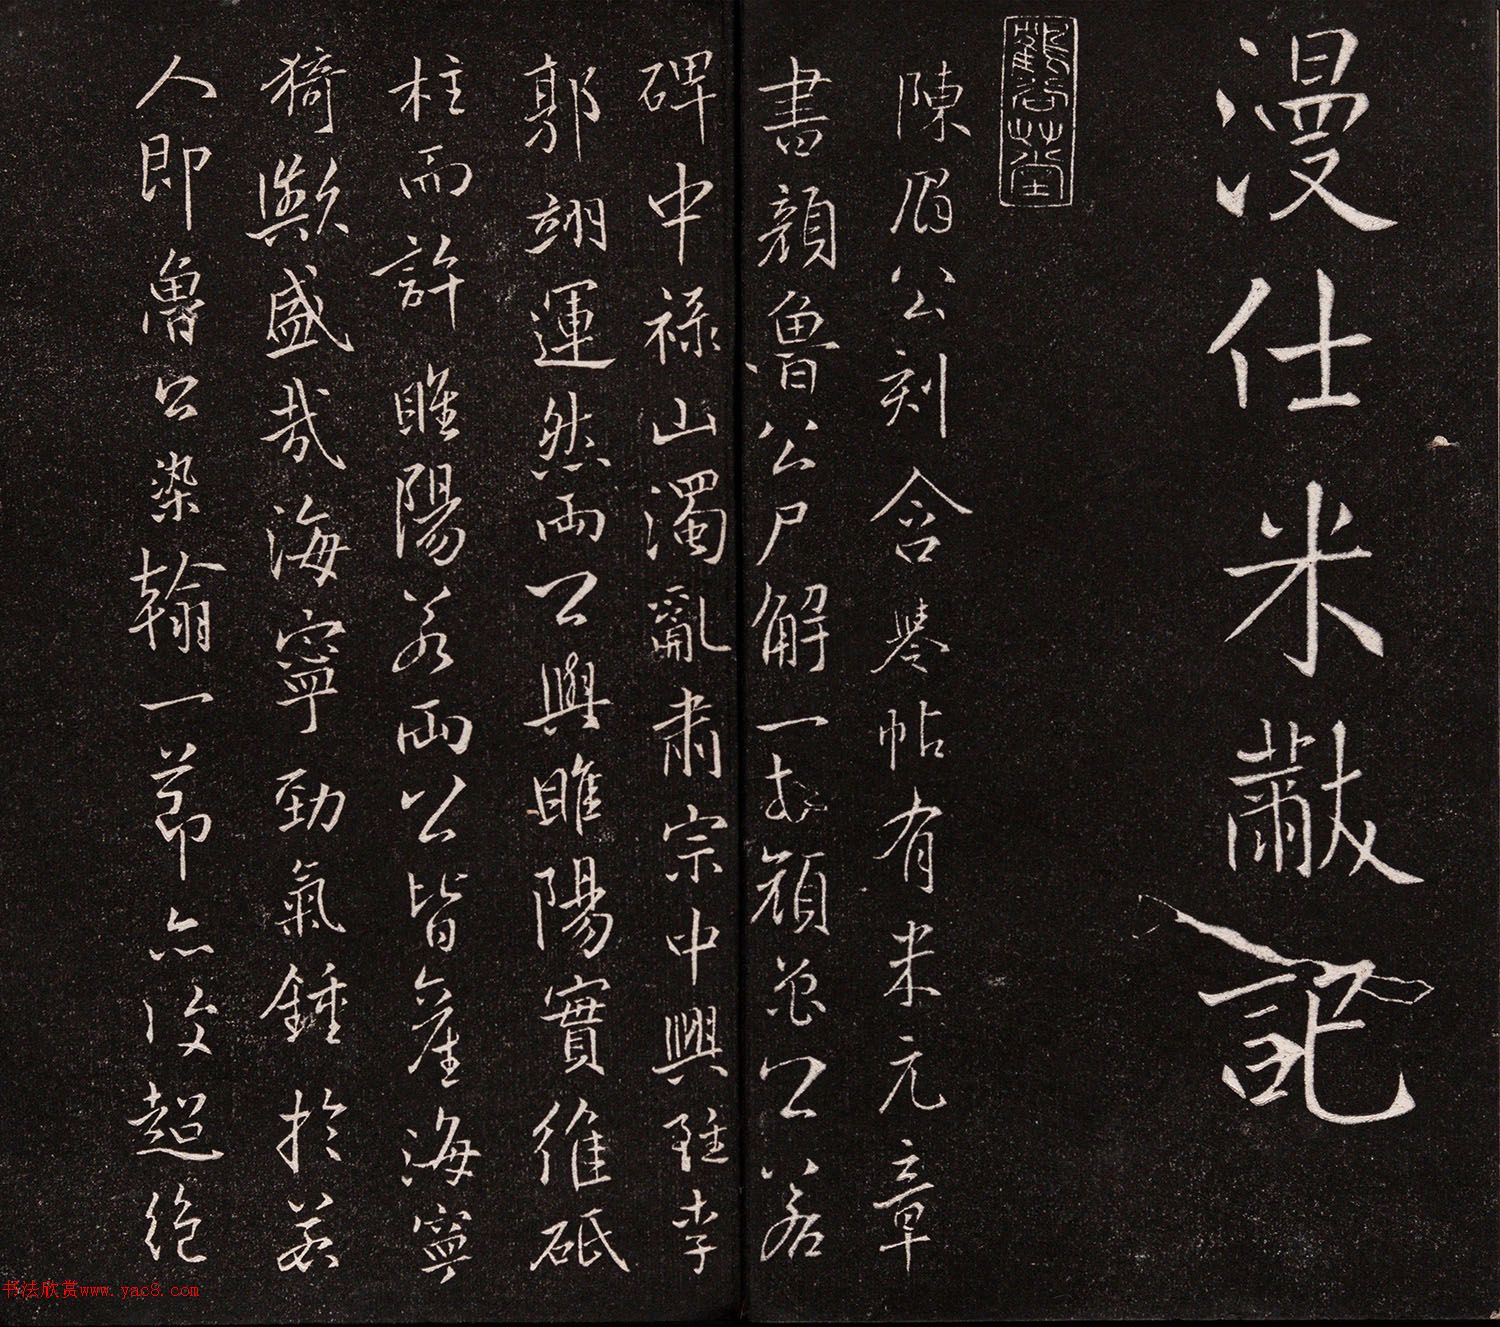 漫仕米黻記
鶴谷草堂
陳眉公刻含譽帖有米元章
書顔魯公尸解一事顔魯公荅
碑中祿山濁亂肅宗中興雖李
郭翊運然兩公與睢陽實維砥
柱而許睢陽若兩公皆產海寧
猗歟盛哉海寧勁氣鍾於若
人即魯公染翰一節亦復超絶
书法欣赏www.yac8.com